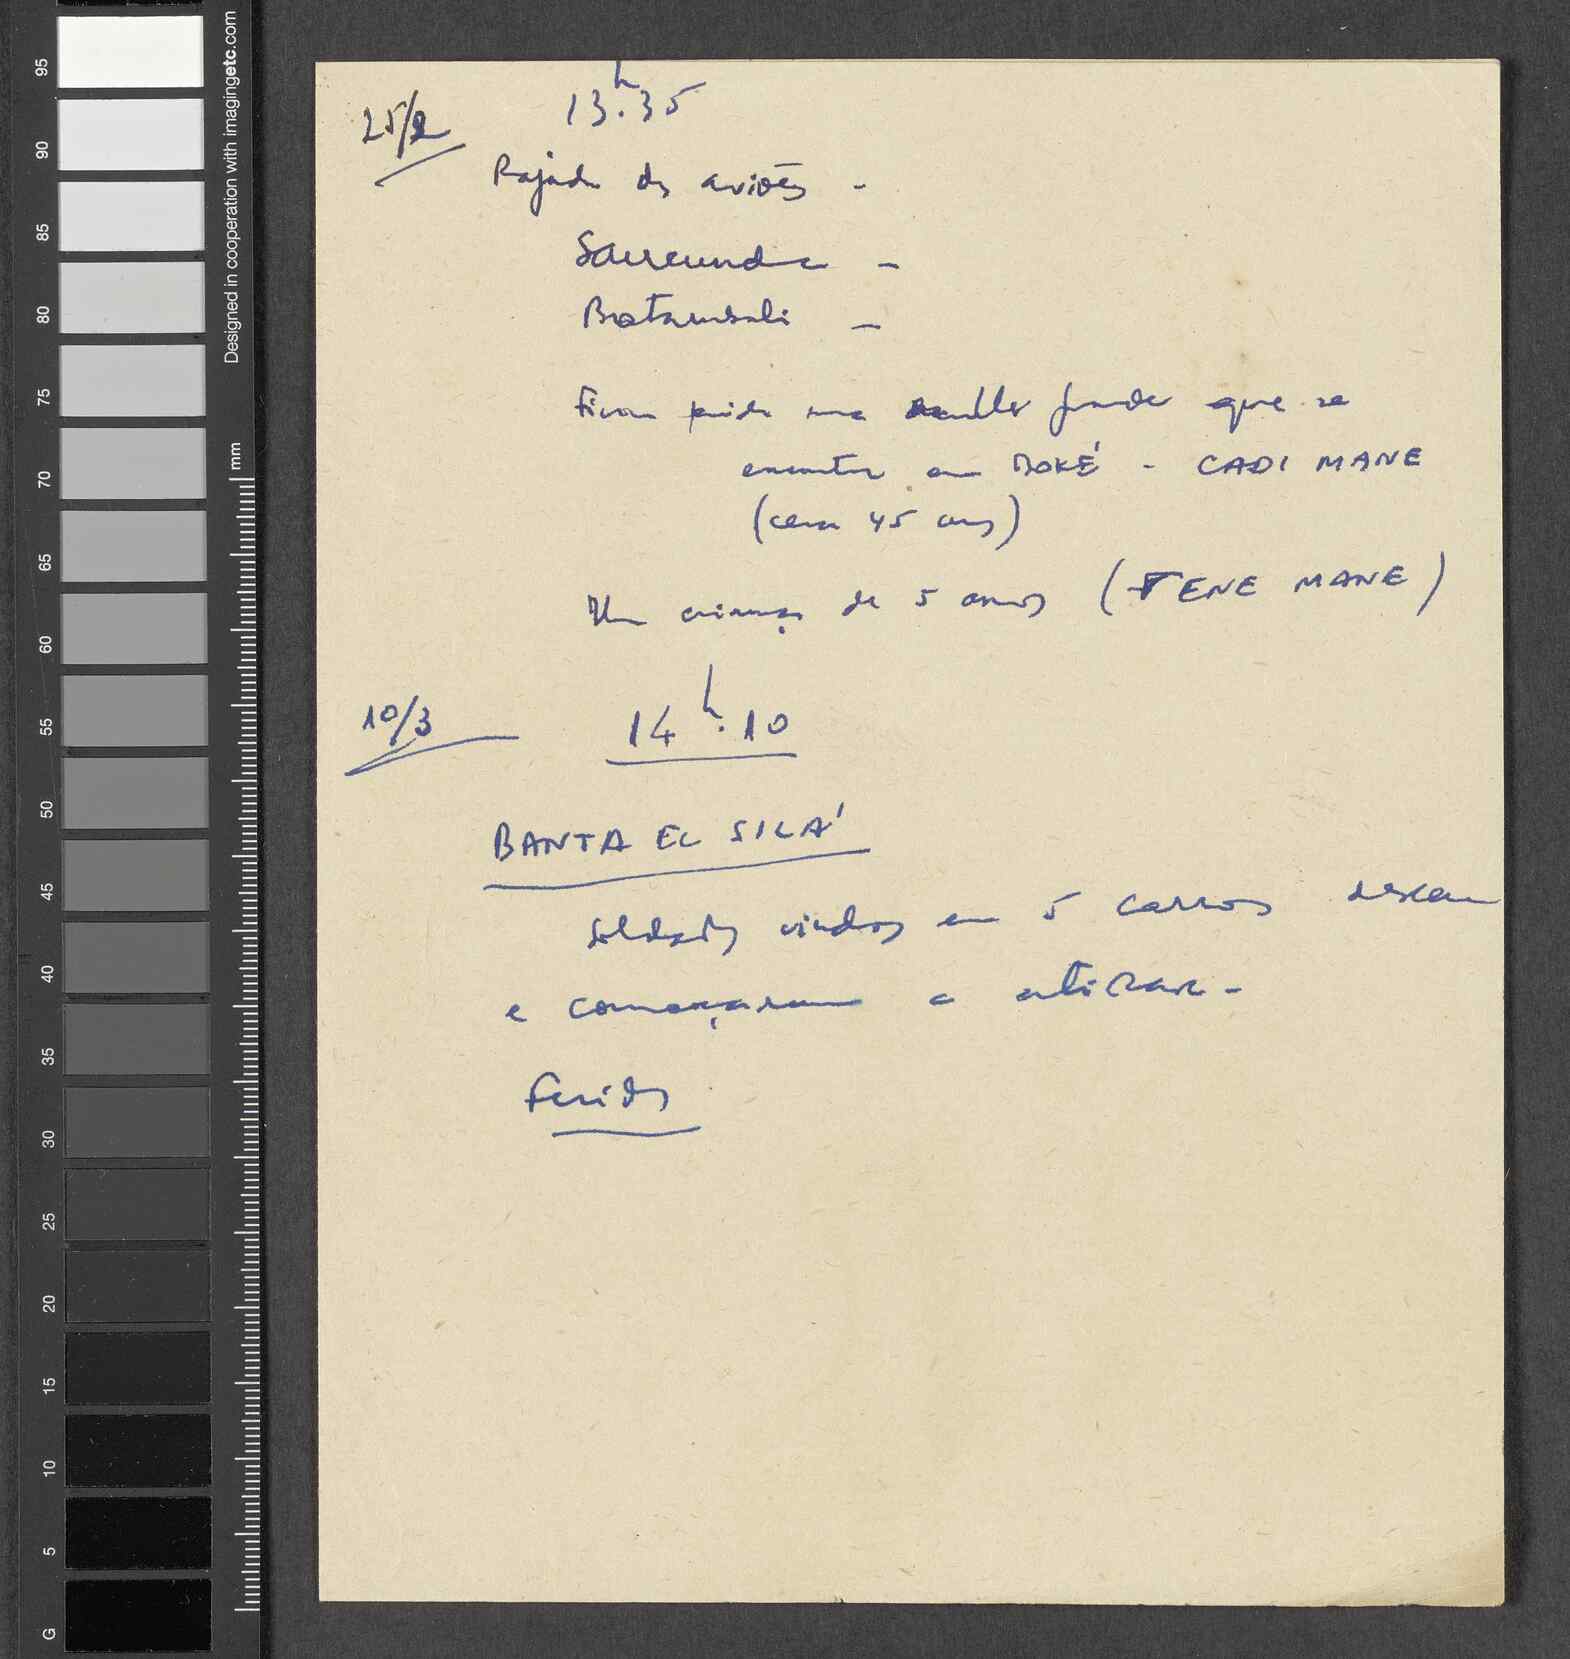 95
90
85
80
75
70
65
60
55
50
45
40
35
30
25
20
15
10
5
G
Designed in cooperation with imagingetc.com
mm
25/2 13h.35
Rajada dos aviões -
Sauraunda -
Botambali -
Ficou ferida uma mulher grande que se
encontra em BOKÉ - CADI MANE
(cerca 45 anos)
Um criança de 5 anos (TENE MANE)
10/3 14h.10
BANTA EL SILÁ
Soldados vindos em 5 carros descem
e começaram a atirar -
Feridos